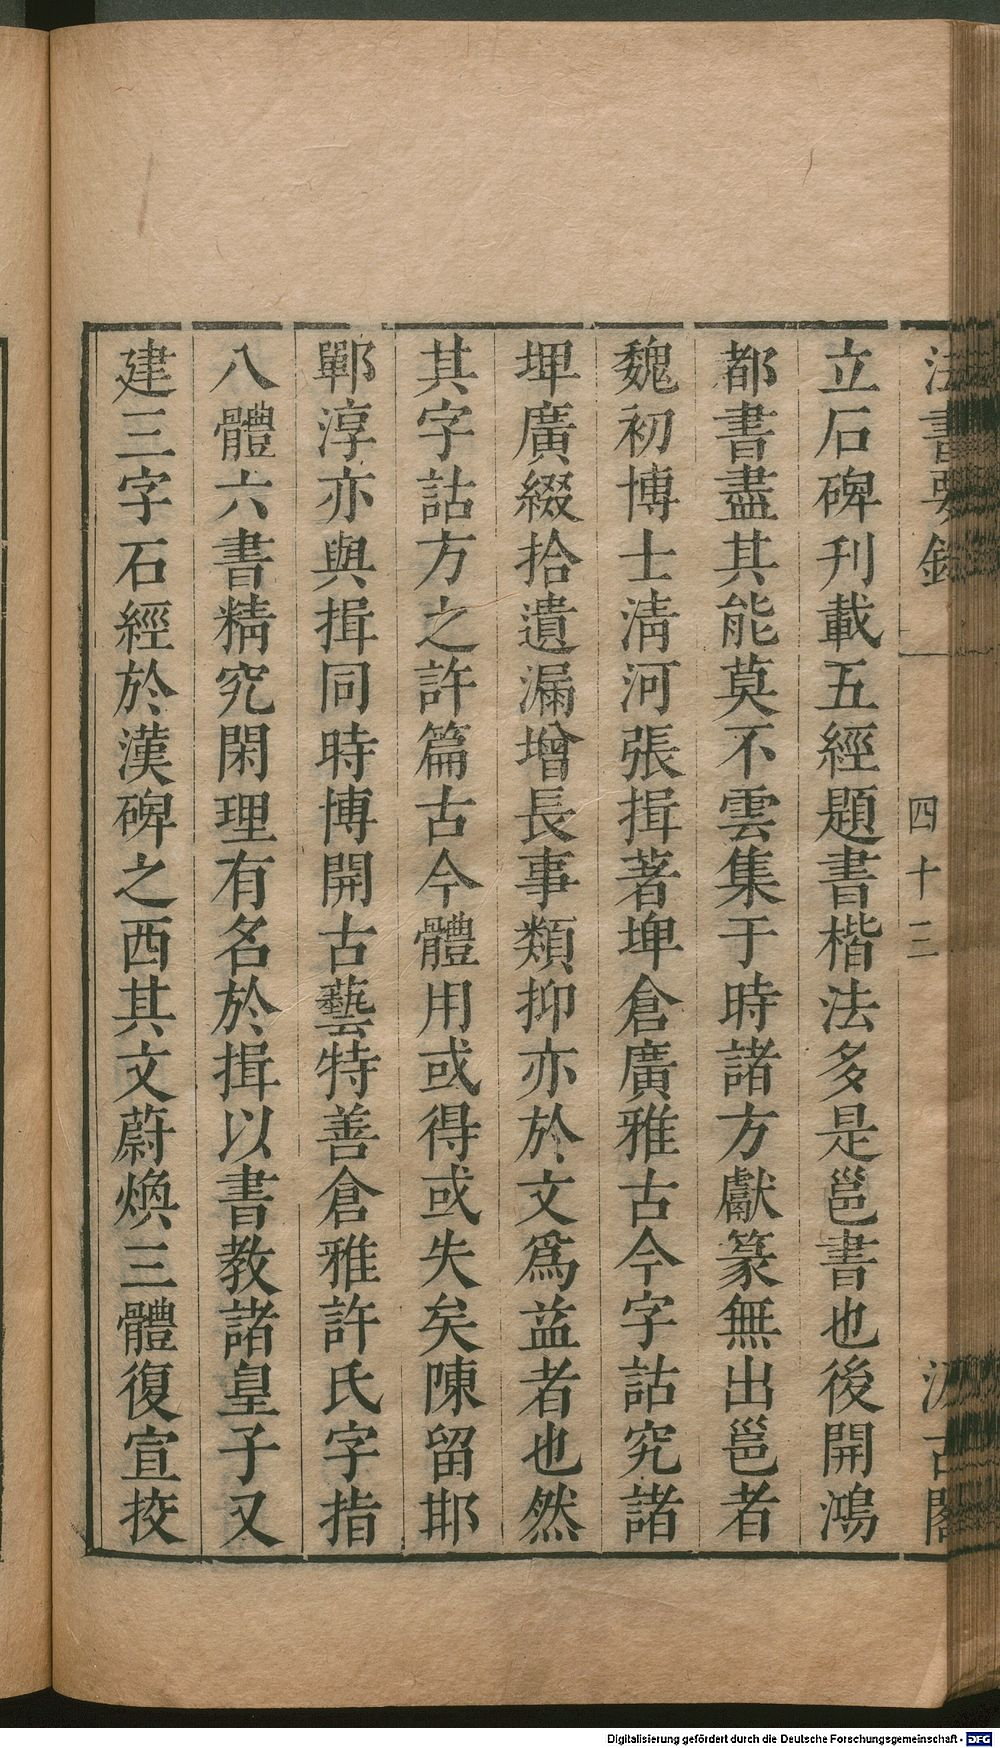 法書要錄
四十三
汲古閣
立石碑刋載五經題書楷法多是邕書也後開鴻
都書畫其能莫不雲集于時諸方獻篆無出邕者
魏初博士淸河張揖著埤倉廣雅古今字詁究諸
埤廣綴拾遺漏增長事類抑亦於文爲益者也然
其字詁方之許篇古今體用或得或失矣陳留邯
鄲淳亦與揖同時博開古藝特善倉雅許氏字指
八體六書精究閑理有名於揖以書教諸皇子又
建三字石經於漢碑之西其文蔚煥三體復宣挍
Digitalisierung gefördert durch die Deutsche Forschungsgemeinschaft - DFG